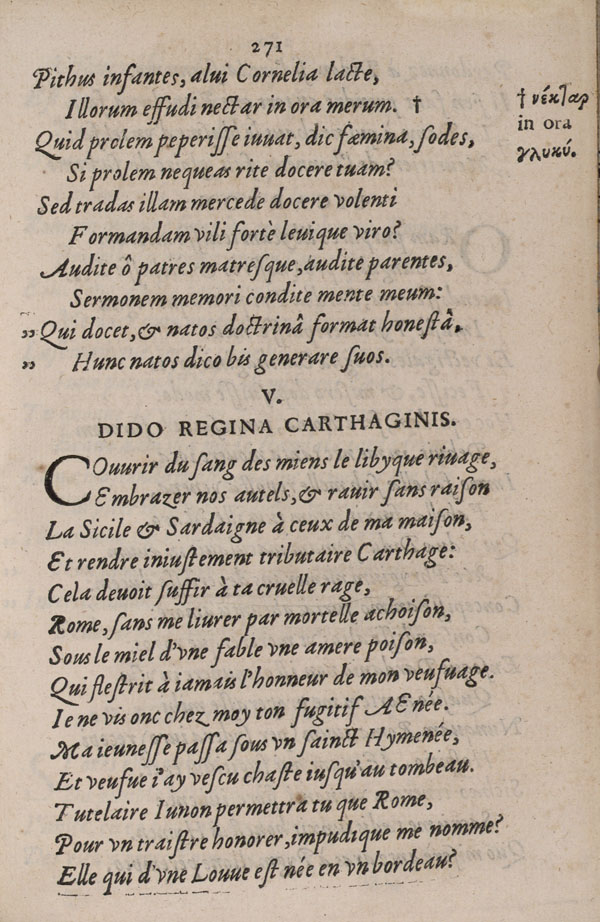 271
Pithus infantes, alui Cornelia lacte,
Illorum effudi nectar in ora merum. †
† νέκταρ
in ora
γλυκύ.
Quid prolem peperiſſe iuuat, dic fæmina, ſodes,
Si prolem nequeas rite docere tuam?
Sed tradas illam mercede docere volenti
Formandam vili fortè leuique viro?
Audite ô patres matreſque, audite parentes,
Sermonem memori condite mente meum:
„ Qui docet, & natos doctrinâ format honeſtâ,
„ Hunc natos dico bis generare ſuos.
V.
DIDO REGINA CARTHAGINIS.
COuurir du ſang des miens le libyque riuage,
Embrazer nos autels, & rauir ſans raiſon
La Sicile & Sardaigne à ceux de ma maiſon,
Et rendre iniuſtement tributaire Carthage:
Cela deuoit ſuffir à ta cruelle rage,
Rome, ſans me liurer par mortelle achoiſon,
Sous le miel d'vne fable vne amere poiſon,
Qui fleſtrit à iamais l'honneur de mon veufuage.
Ie ne vis onc chez moy ton fugitif AEnée.
Ma ieuneſſe paſſa ſous vn ſainct Hymenée,
Et veufue i'ay veſcu chaſte iuſqu'au tombeau.
Tutelaire Iunon permettra tu que Rome,
Pour vn traiſtre honorer, impudique me nomme?
Elle qui d'vne Louue eſt née en vn bordeau?